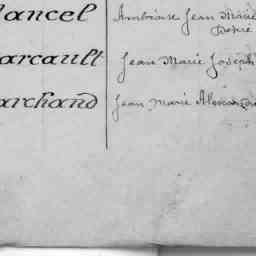 ancel Ambroise Jean Marie
Désiré
arcault Jean Marie Joseph
archand Jean Marie Alexandre